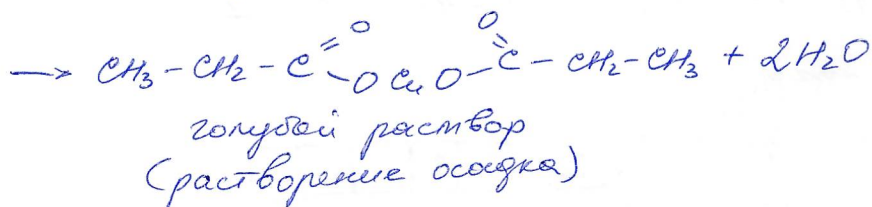 → CH₃-CH₂-C(=O)-O Cu O-C(=O)-CH₂-CH₃ + 2H₂O
голубой раствор
(растворение осадка)